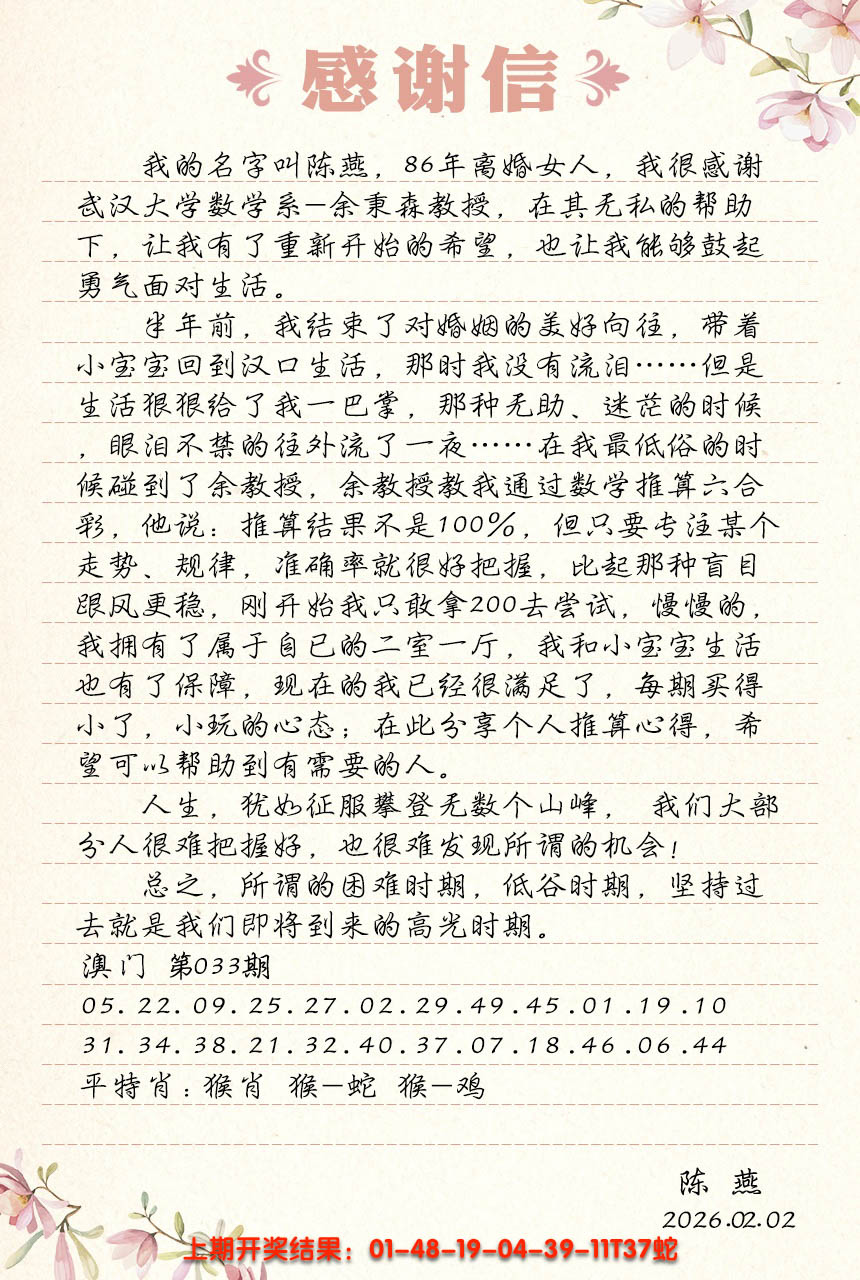 感谢信
我的名字叫陈燕，86年离婚女人，我很感谢
武汉大学数学系—余秉森教授，在其无私的帮助
下，让我有了重新开始的希望，也让我能够鼓起
勇气面对生活。
半年前，我结束了对婚姻的美好向往，带着
小宝宝回到汉口生活，那时我没有流泪……但是
生活狠狠给了我一巴掌，那种无助、迷茫的时候
，眼泪不禁的往外流了一夜……在我最低俗的时
候碰到了余教授，余教授教我通过数学推算六合
彩，他说：推算结果不是100%，但只要专注某个
走势、规律，准确率就很好把握，比起那种盲目
跟风更稳，刚开始我只敢拿200去尝试，慢慢的，
我拥有了属于自已的二室一厅，我和小宝宝生活
也有了保障，现在的我已经很满足了，每期买得
小了，小玩的心态；在此分享个人推算心得，希
望可以帮助到有需要的人。
人生，犹如征服攀登无数个山峰， 我们大部
分人很难把握好，也很难发现所谓的机会！
总之，所谓的困难时期，低谷时期，坚持过
去就是我们即将到来的高光时期。
澳门 第033期
05.22.09.25.27.02.29.49.45.01.19.10
31.34.38.21.32.40.37.07.18.46.06.44
平特肖：猴肖 猴—蛇 猴—鸡
陈 燕
2026.02.02
上期开奖结果：01-48-19-04-39-11T37蛇